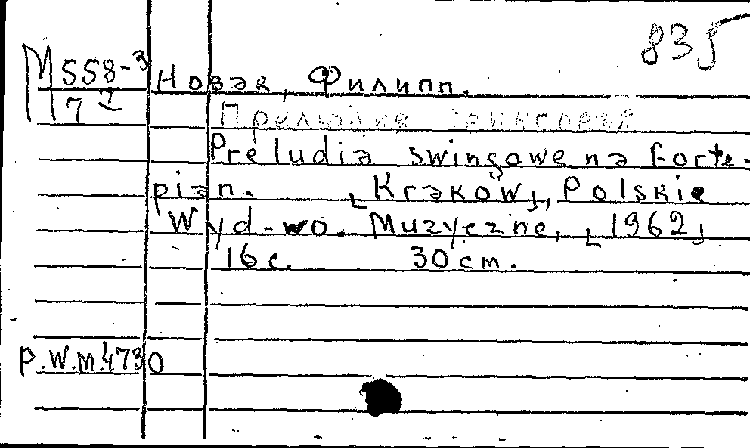 835
М 558-3
17 2
Новак, Филипп.
Прелюдия свинговая
Preludia swingowe na forte-
pian. [Kraków], Polskie
Wyd-wo. Muzyczne, [1962]
16 с. 30 см.
P.W.M. 4730